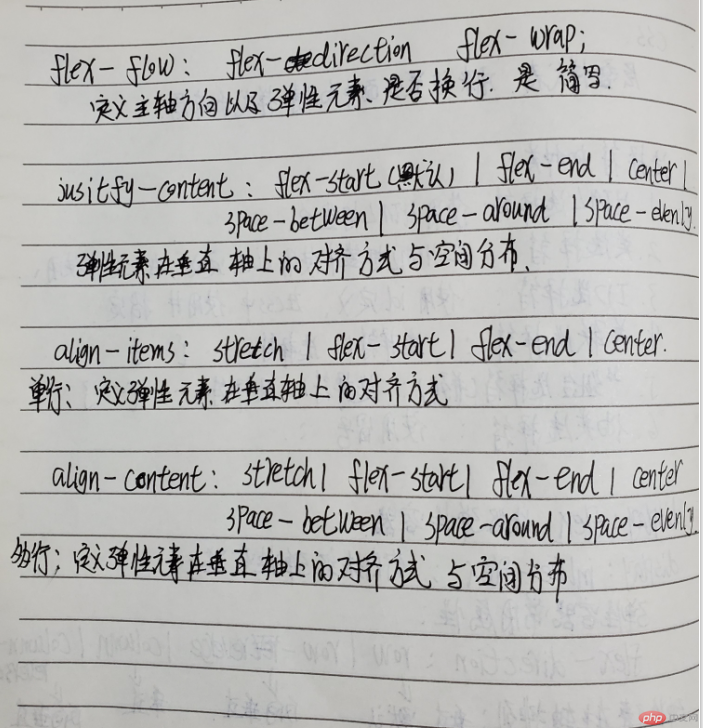 flex-flow: flex-direction flex-wrap;
定义主轴方向以及弹性元素、是否换行. 是 简写.
jusitfy-content: flex-start(默认) | flex-end | center |
space-between | space-around | space-evenly.
弹性元素在垂直 轴上的对齐方式与空间分布、
align-items: stretch | flex-start | flex-end | center.
单行、定义弹性元素在垂直轴上的对齐方式
align-content: stretch | flex-start | flex-end | center
space-between | space-around | space-evenly.
多行; 定义弹性元素在垂直轴上的对齐方式 与空间分布
php 中文网